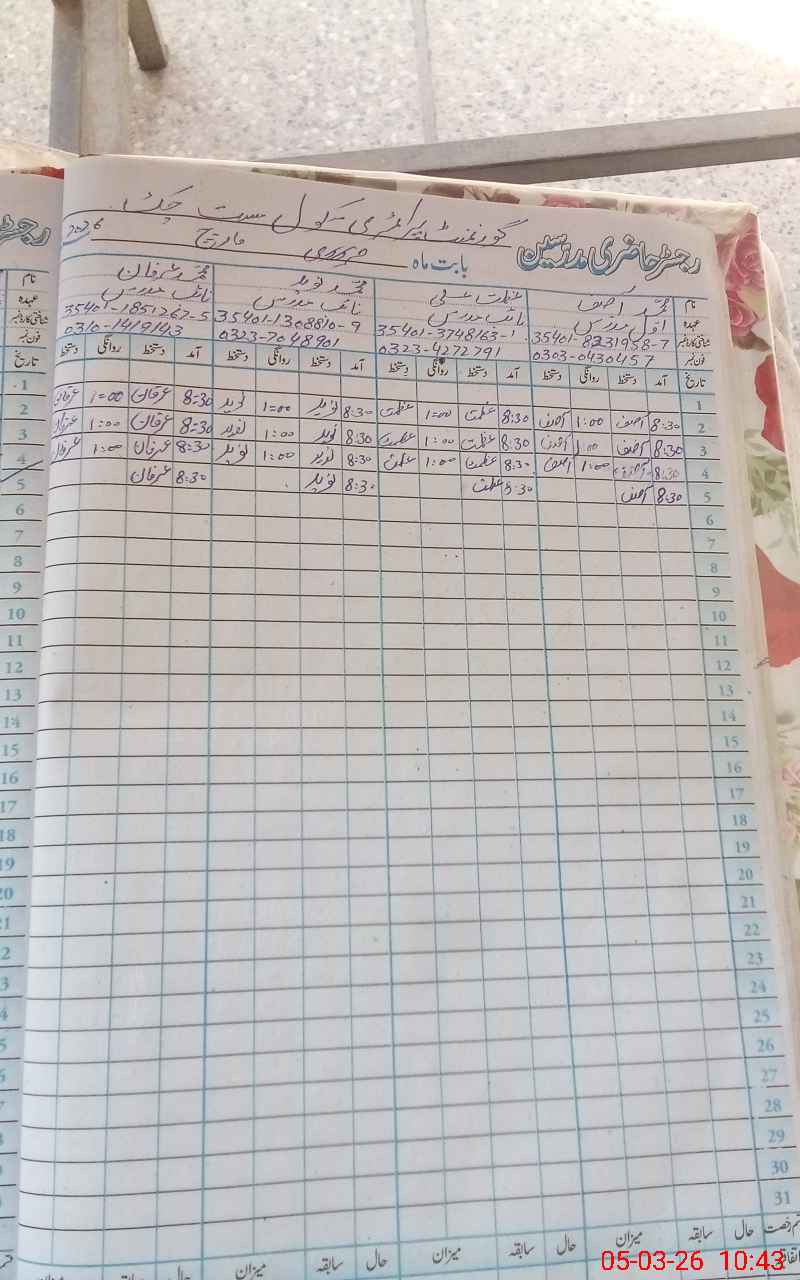 رجسٹر حاضری مدرسین گورنمنٹ پرائمری سکول ست چک
بابت ماہ فروری مارچ 2026
نام محمد آصف عظمت علی محمد نوید محمد عرفان
عہدہ اول مدرس نائب مدرس نائب مدرس نائب مدرس
شناختی کارڈ نمبر 35401-8231958-7 35401-3748163-1 35401-1308810-9 35401-1851267-5
فون نمبر 0303-0430457 0323-4272791 0323-7048901 0310-1419143
تاریخ آمد دستخط روانگی دستخط آمد دستخط روانگی دستخط آمد دستخط روانگی دستخط آمد دستخط روانگی دستخط
1
2 8:30 آصف 1:00 آصف 8:30 عظمت 1:00 عظمت 8:30 نوید 1:00 نوید 8:30 عرفان 1:00 عرفان
3 8:30 آصف 1:00 آصف 8:30 عظمت 1:00 عظمت 8:30 نوید 1:00 نوید 8:30 عرفان 1:00 عرفان
4 8:30 آصف 1:00 آصف 8:30 عظمت 1:00 عظمت 8:30 نوید 1:00 نوید 8:30 عرفان 1:00 عرفان
5 8:30 آصف 8:30 عظمت 8:30 نوید 8:30 عرفان
6
7
8
9
10
11
12
13
14
15
16
17
18
19
20
21
22
23
24
25
26
27
28
29
30
31
حال سابقہ میزان حال سابقہ میزان حال سابقہ میزان حال
05-03-26 10:43
رجسٹر
نام
عہدہ
شناختی کارڈ نمبر
فون نمبر
تاریخ
1
2
3
4
5
6
7
8
9
10
11
12
13
14
15
16
17
18
19
20